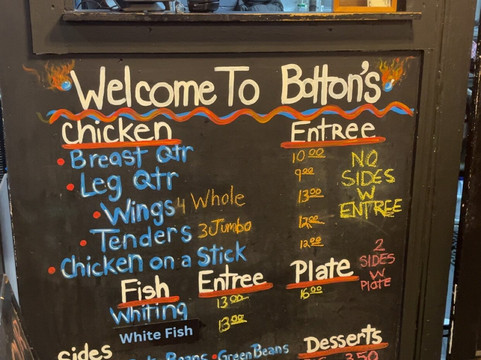 Welcome To Bolton's
Chicken Entree
• Breast Qtr 10.00
• Leg Qtr 9.00
• Wings 4 Whole 13.00
• Tenders 3 Jumbo 12.00
• Chicken on a Stick 12.00
NO
SIDES
W
ENTREE
Fish Entree Plate
Whiting 13.00 16.00
White Fish 13.00
2
SIDES
W
PLATE
Sides
Beans • Green Beans
Desserts
3.50